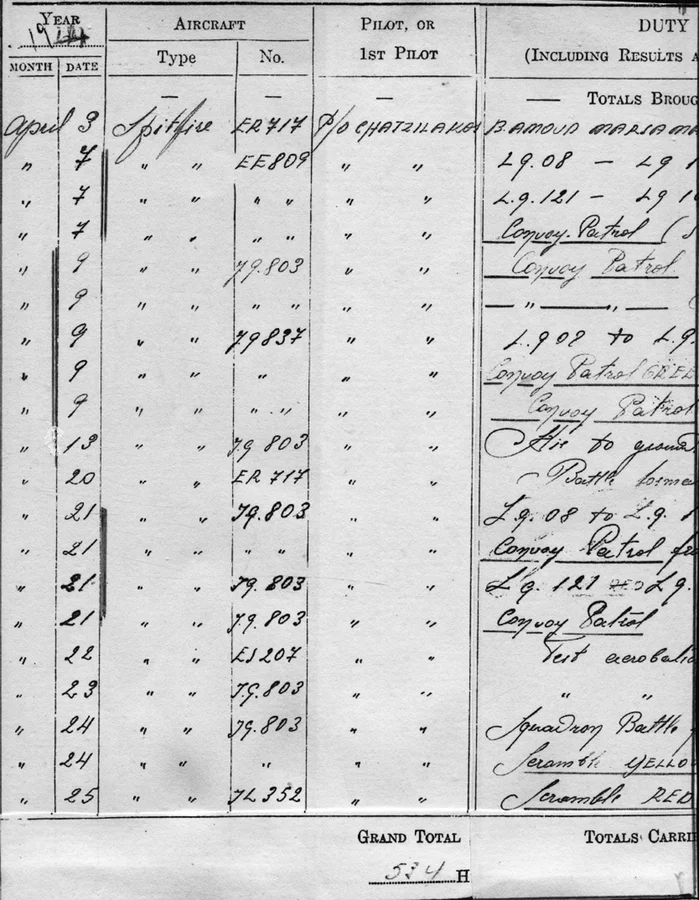 YEAR AIRCRAFT PILOT, OR DUTY
1944 1ST PILOT (INCLUDING RESULTS A
MONTH DATE Type No.
— — — — TOTALS BROUG
April 3 Spitfire ER717 P/O CHATZILAKOS B.AMOUD MARSA MA
" 7 " " EE809 " " L9.08 — L9 1
" 7 " " " " " " L.9.121 — L9 1
" 7 " " " " " " Convoy Patrol (
" 9 " " J9.803 " " Convoy Patrol
" 9 " " " " " " — " — " —
" 9 " " J9837 " " L.9 08 to L.9.
" 9 " " " " " Convoy Patrol GREE
" 9 " " " " " " Convoy Patrol
" 13 " " J9 803 " " Air to ground
" 20 " " ER 717 " " Battle forma
" 21 " " J9.803 " " L.9. 08 to L.9. 1
" 21 " " " " " " Convoy Patrol fr
" 21 " " J9 803 " " L.9. 121 L9.
" 21 " " J.9.803 " " Convoy Patrol
" 22 " " ES207 " " Test aerobatic
" 23 " " J.9.803 " " " "
" 24 " " J9.803 " " Squadron Battle
" 24 " " " " " Scramble YELLO
" 25 " " JL352 " " Scramble RED
GRAND TOTAL TOTALS CARRIE
534 H